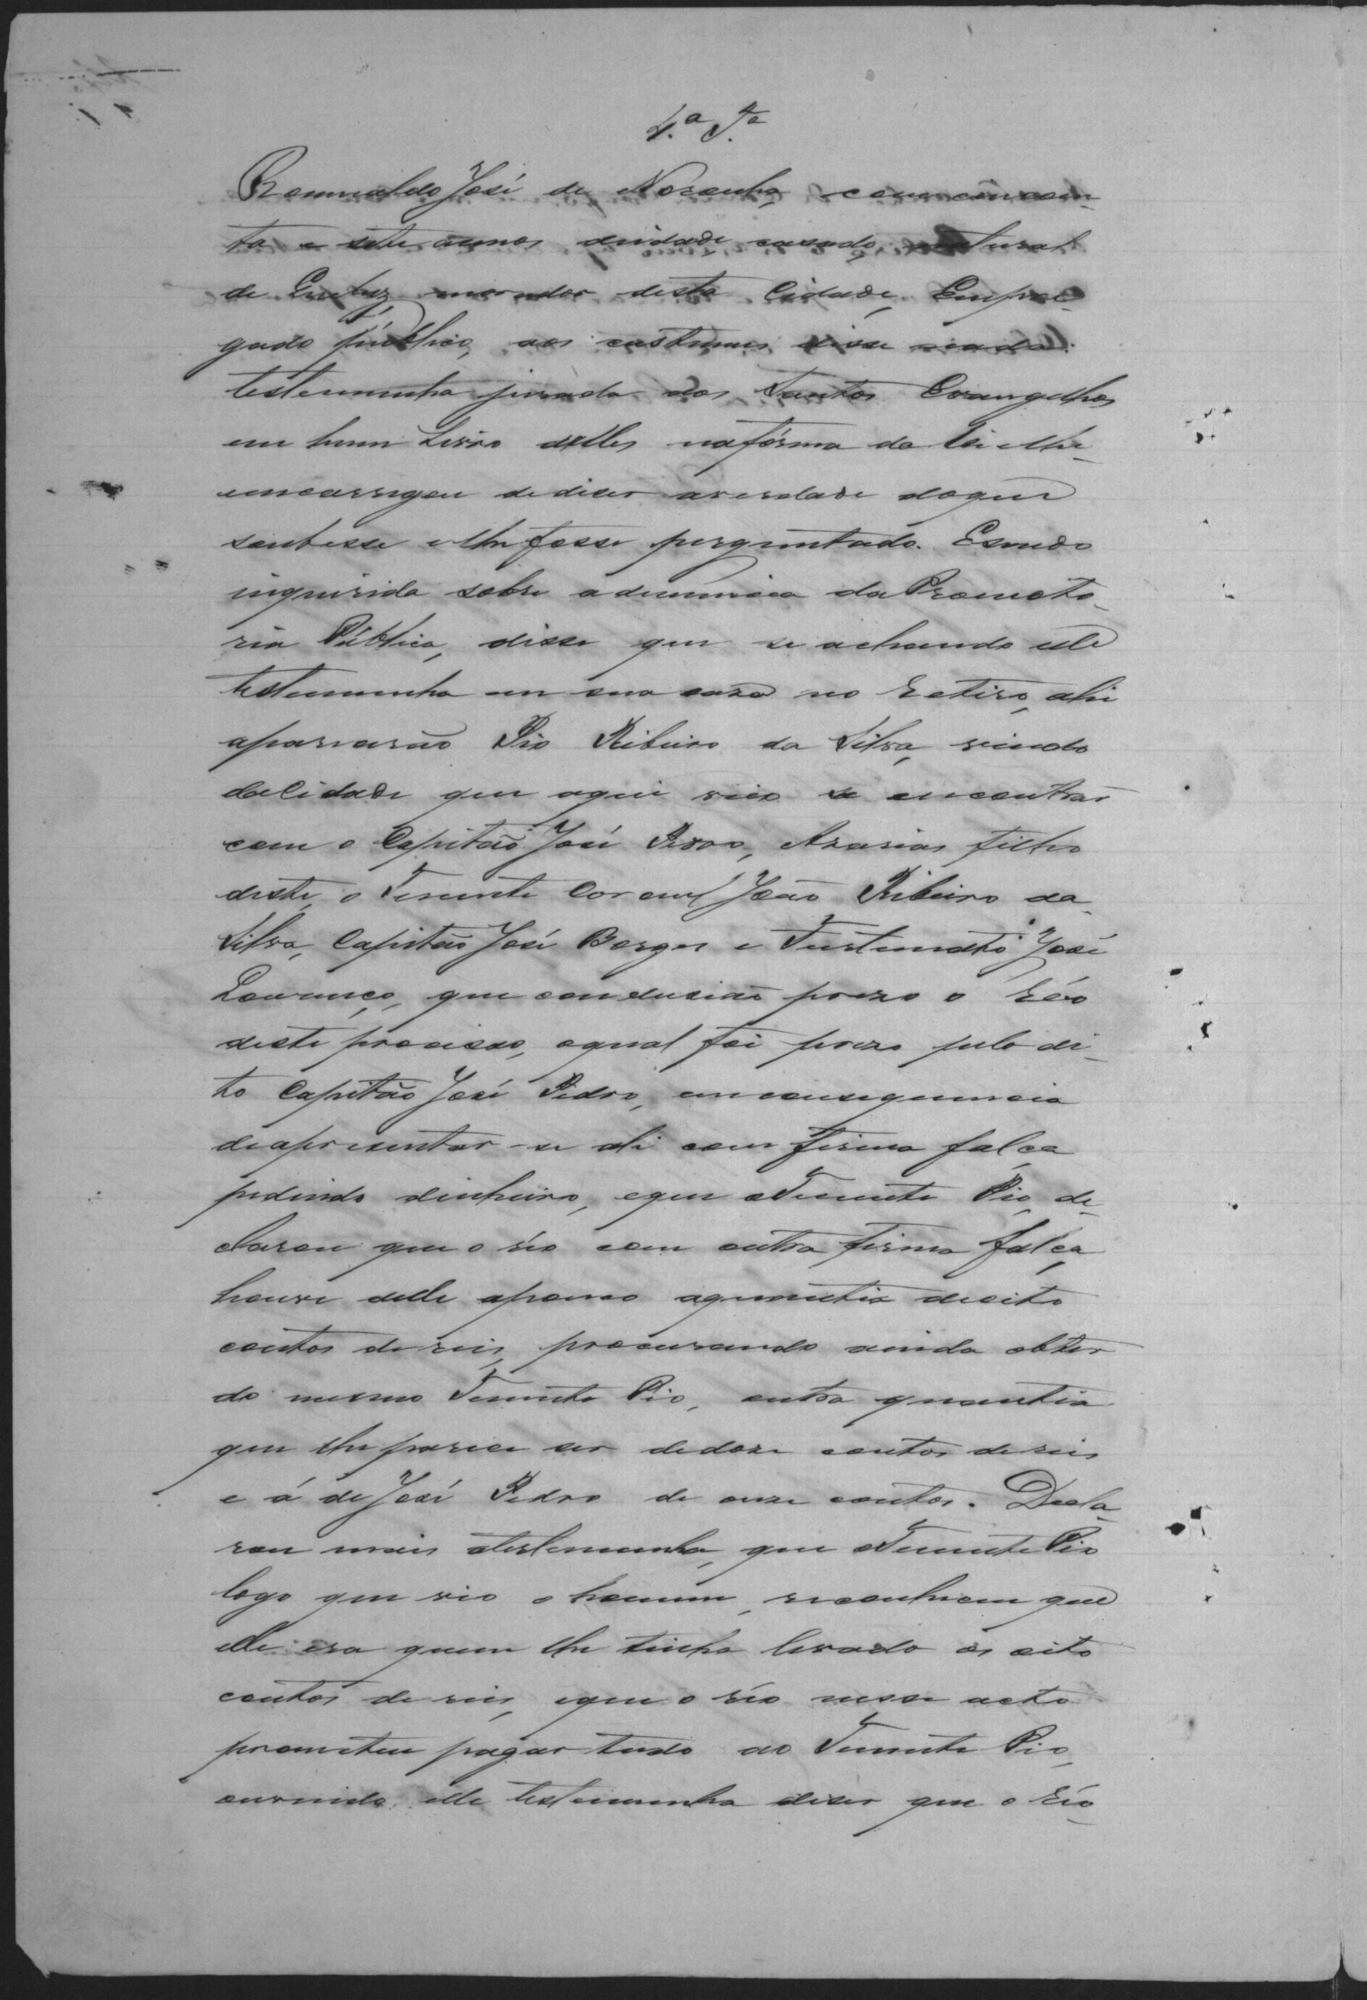 4.ª T.ª
Romualdo José de Noronha, com cincoen-
ta e sete annos deidade, casado, natural
de Queluz, morador desta Cidade, Empre-
gado público, aos custumes disse nada.
testemunha jurada aos Santos Evangelhos
em hum Livro delles naforma da lei elhe
emcarregou dedizer averdade doque
soubesse elhe fosse perguntado. Esendo
inquirida sobre adenuncia da Promoto-
ria Pública, disse que se achando elle
testemunha em sua caza no Retiro, ahi
aparcarão Pio Ribeiro da Silva, vindo
dacidade que aqui veio se encontrar
com o Capitão José Pedro, Azarias filho
deste, o Tenente Coronel João Ribeiro da
Silva, Capitão José Borges e Justino José
Lourenço, que condusião prezo o Réo
deste processo, oqual foi prezo pelo di-
to Capitão José Pedro, em consequencia
deapresentar-se ali com firma falça
pedindo dinheiro, eque oTenente Pio, de-
clarou que o réo com outra firma falça
houve delle apouco aquantia deoito
contos dereis, procurando ainda obter
do mesmo Tenente Pio, outra quantia
que lhe parece ser dedoze contos dereis
e á de José Pedro de onze contos. Decla-
rou mais atestemunha, que oTenente Pio
logo que vio o homem, reconheceu que
elle era quem lhe tinha levado os oito
contos de reis, eque o réo nesse acto
prometeu pagar tudo ao Tenente Pio,
ouvindo elle testemunha dizer que o Réo